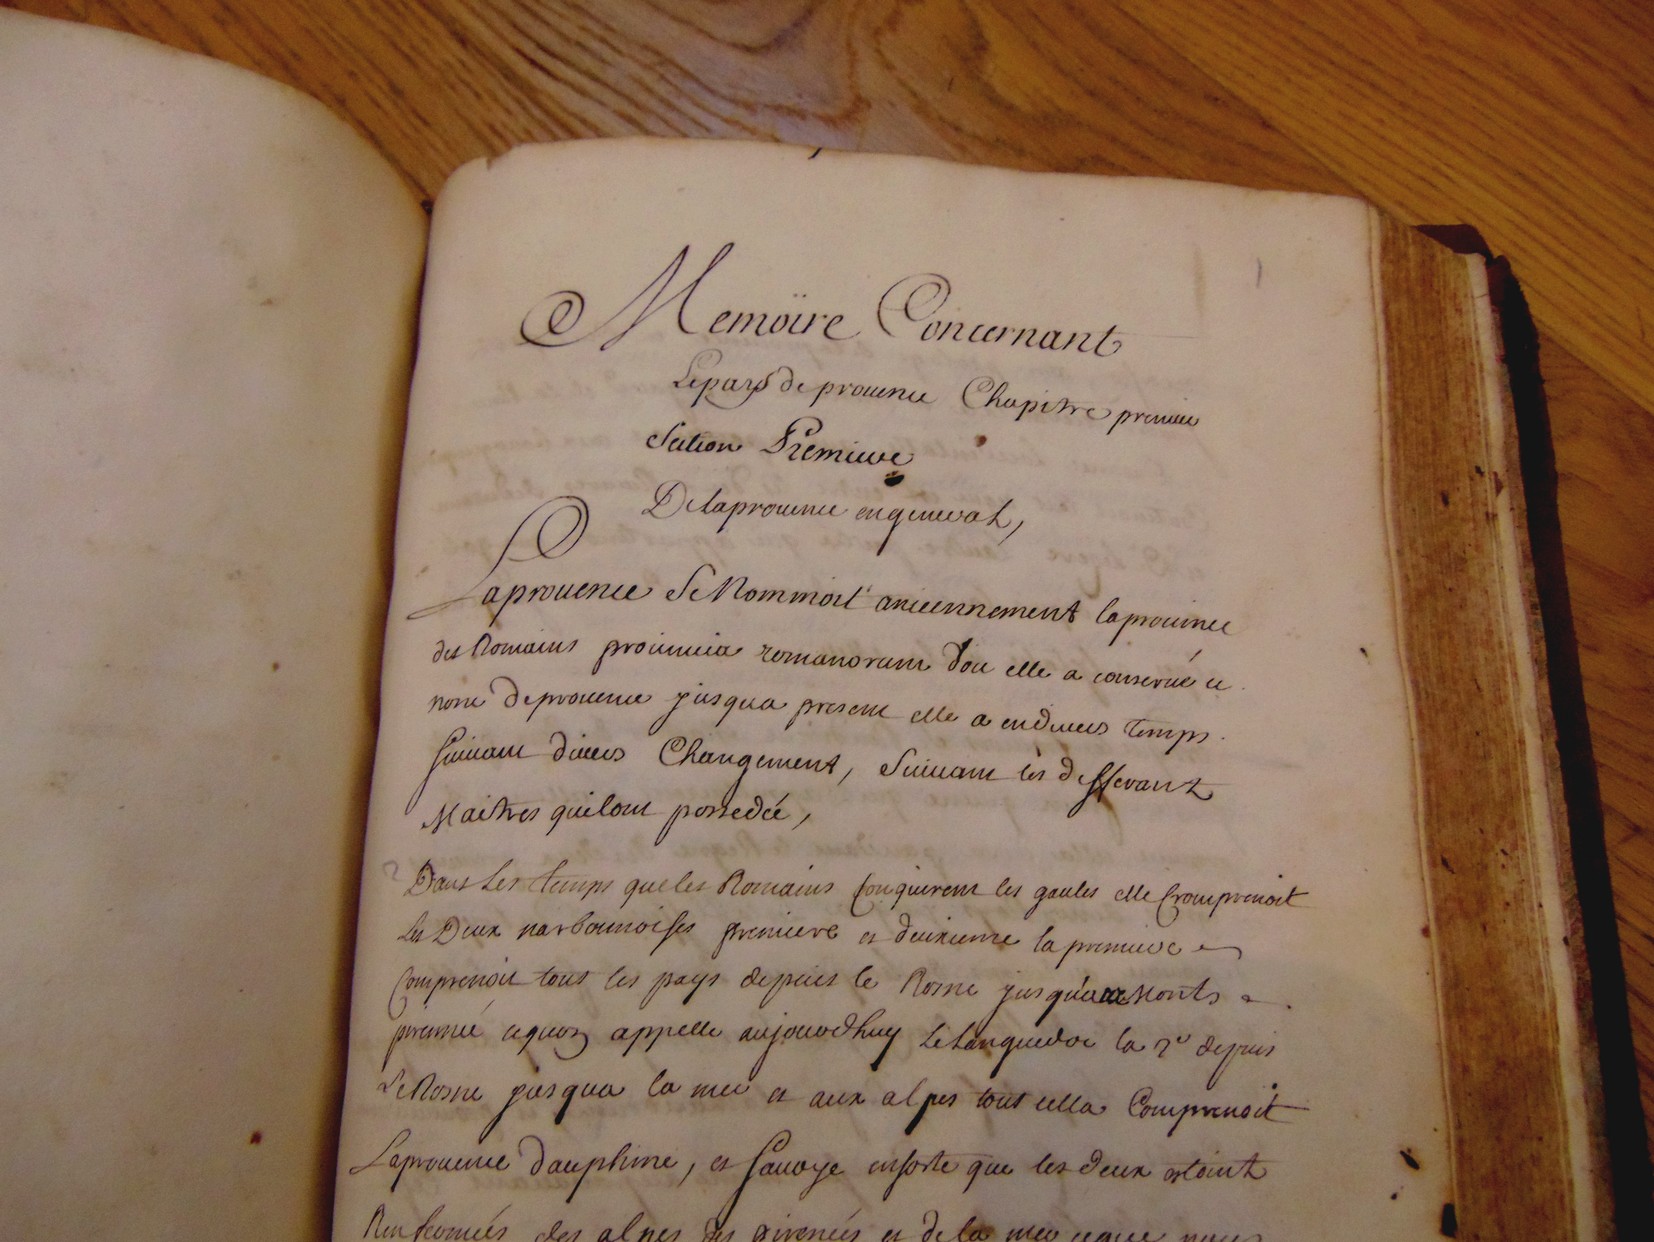 Memoïre Concernant
Lepays de prouence Chapitre premier
Section Premiere
Delaprouence engeneral,
Laprouence Se Nommoit anciennement laprouince
des Romains prouincia romanorum dou elle a conserué ce
nom deprouence jusqua present elle a endiuers temps
Suiuant diuers Changement, Suiuant les differants
Maitres quilont possedée,
Dans Les temps que les Romains Conquirent les gaules elle Comprenoit
Les Deux narbonnoises premiere et deuxieme la premiere
Comprenoit tout les pays depuis le Rosne jusqu'aux Monts
pirennée cequon appelle aujourdhuy Lelanguedoc la 2e depuis
Le Rosne jusqua la mer et aux alpes tout cella Comprenoit
Laprouence dauphiné, et Sauoye ensorte que les deux estoint
Renfermées des alpes des pirenées et de la mer ceque nous